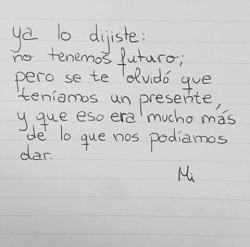 ya lo dijiste:
no tenemos futuro;
pero se te olvidó que
teníamos un presente,
y que eso era mucho más
de lo que nos podíamos
dar.
Mi